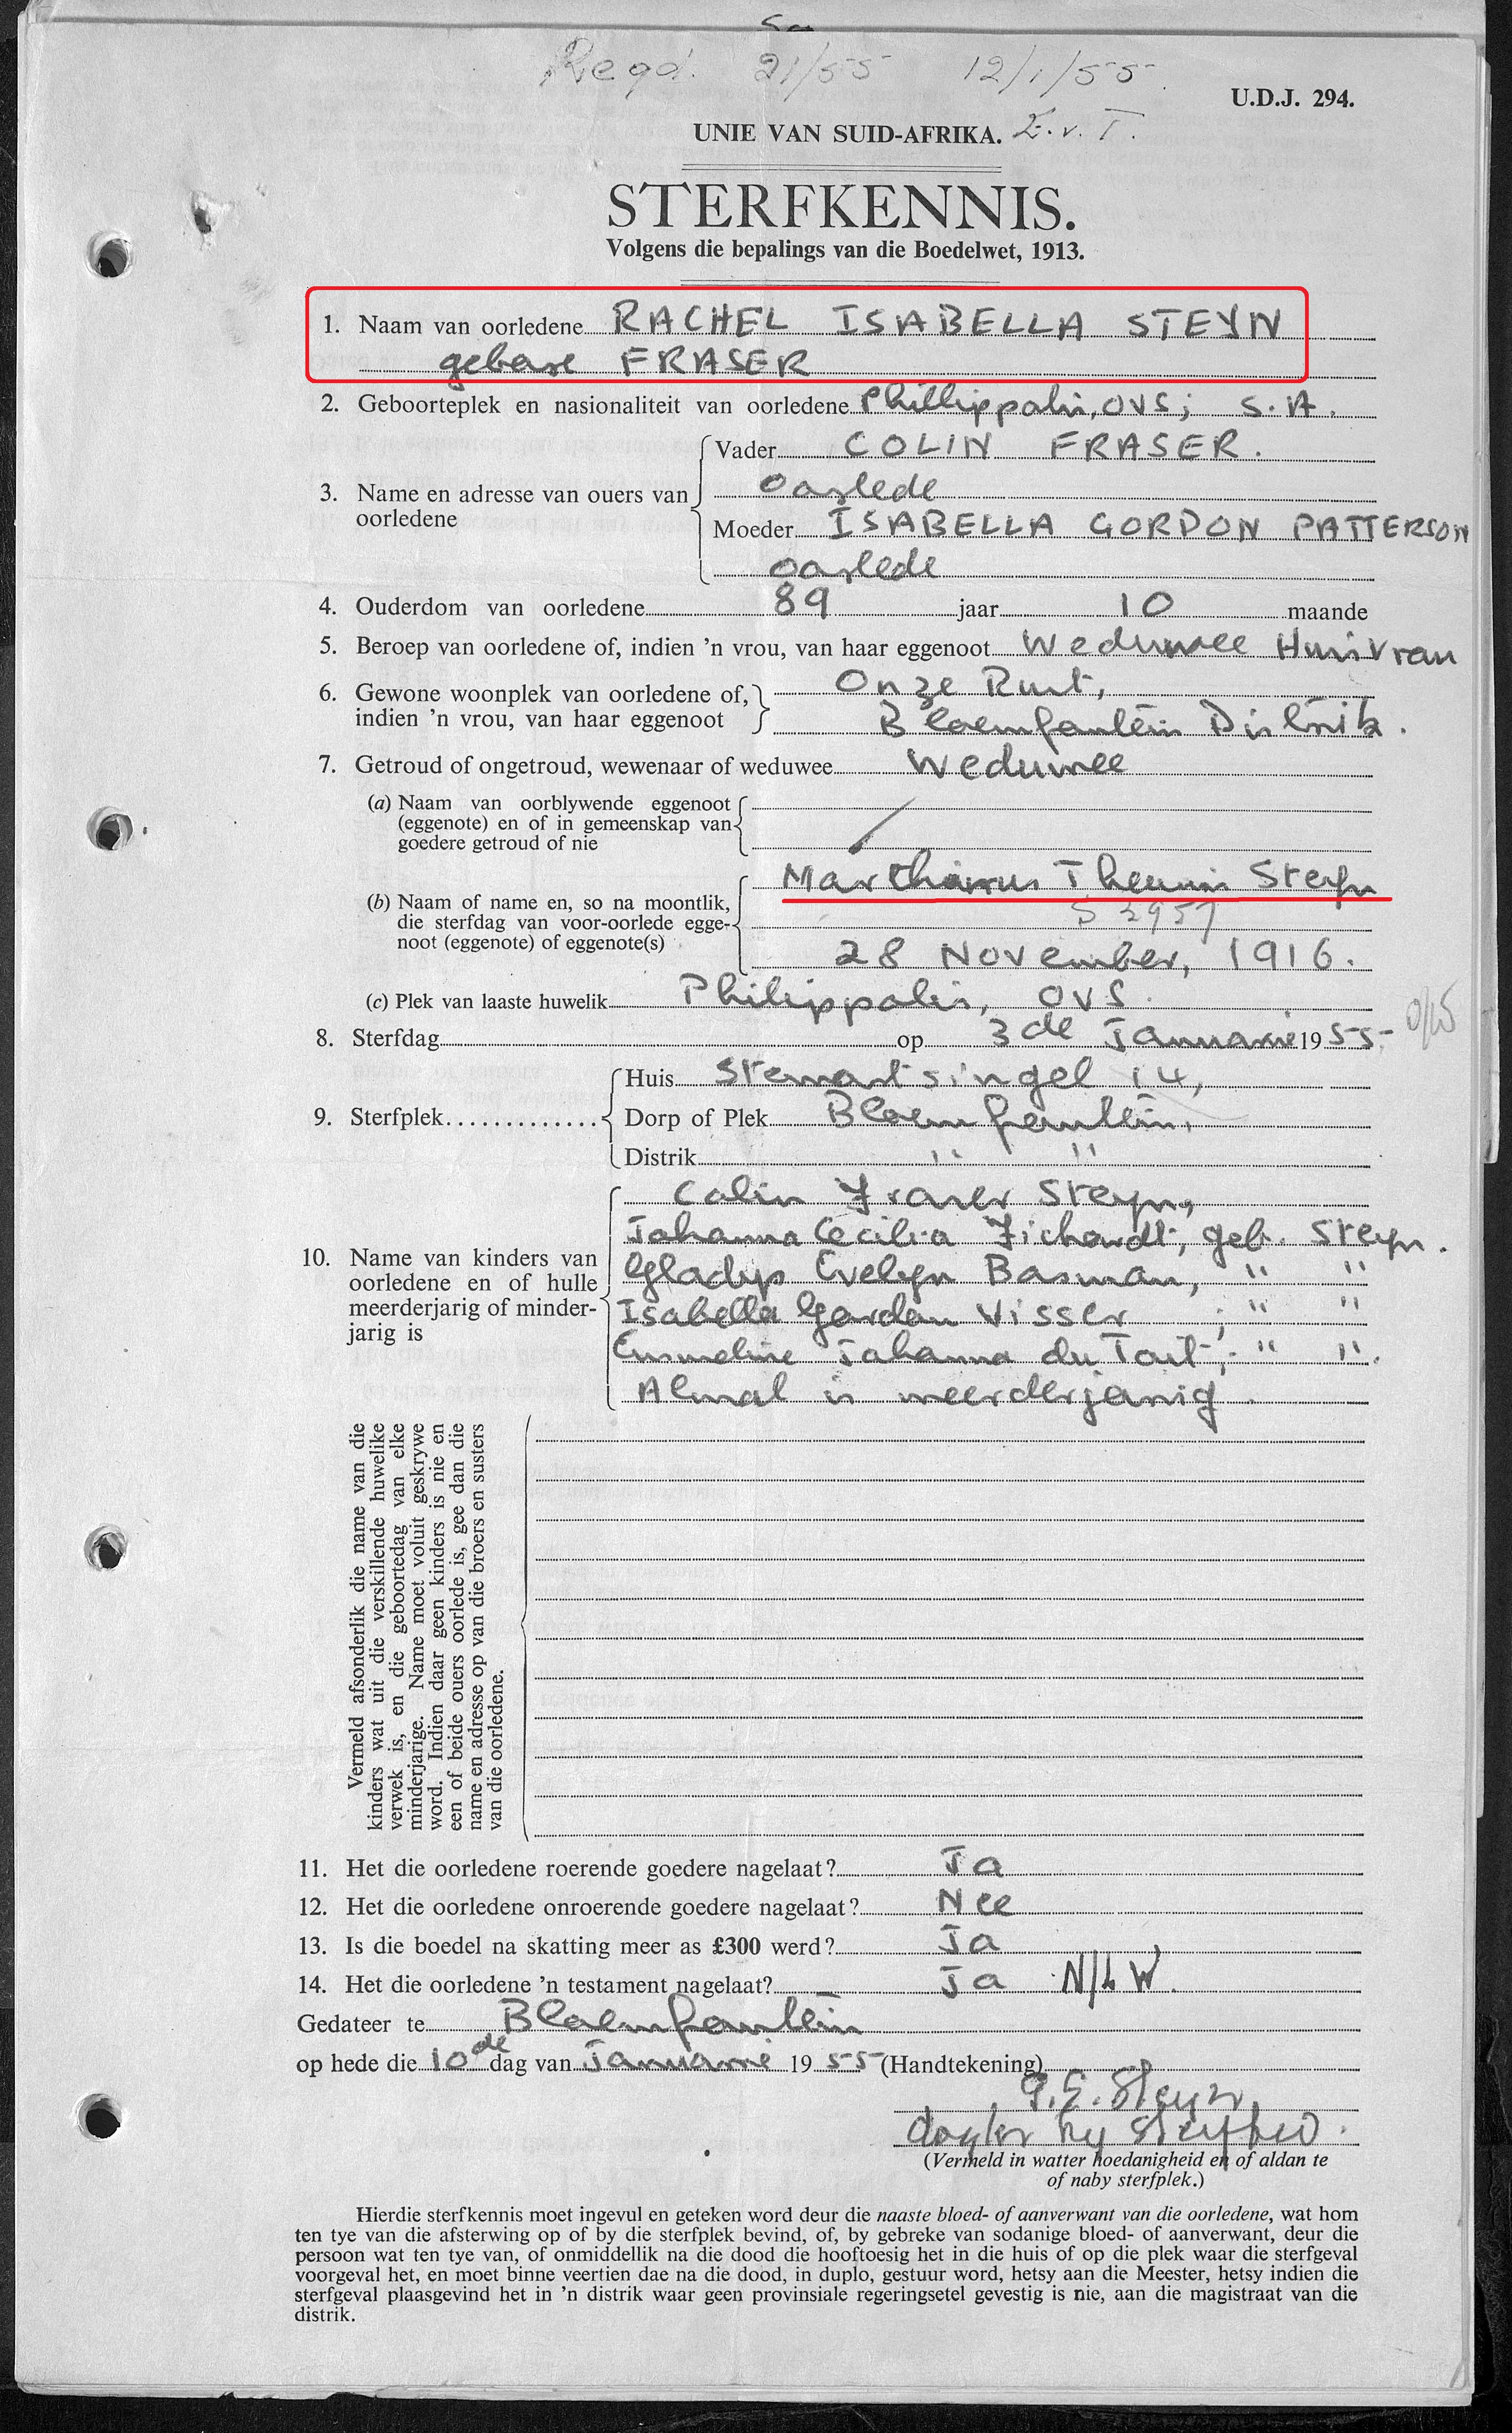 Regd. 21/55 12/1/55
U.D.J. 294.
UNIE VAN SUID-AFRIKA.
STERFKENNIS.
Volgens die bepalings van die Boedelwet, 1913.
1. Naam van oorledene RACHEL ISABELLA STEYN
gebore FRASER
2. Geboorteplek en nasionaliteit van oorledene Phillippolis, OVS; S.A.
3. Name en adresse van ouers van oorledene
Vader COLIN FRASER.
oorlede
Moeder ISABELLA GORDON PATTERSON
oorlede
4. Ouderdom van oorledene 89 jaar 10 maande
5. Beroep van oorledene of, indien 'n vrou, van haar eggenoot Weduwee Huisvrou
6. Gewone woonplek van oorledene of, indien 'n vrou, van haar eggenoot
Onze Rust,
Bloemfontein Distrik.
7. Getroud of ongetroud, wewenaar of weduwee Weduwee
(a) Naam van oorblywende eggenoot
(eggenote) en of in gemeenskap van
goedere getroud of nie
(b) Naam of name en, so na moontlik,
die sterfdag van voor-oorlede egge-
noot (eggenote) of eggenote(s)
Marthinus Theunis Steyn
S 2957
28 November, 1916.
(c) Plek van laaste huwelik Philippolis, OVS.
8. Sterfdag op 3de Januarie 1955
9. Sterfplek
Huis Stewartsingel 14,
Dorp of Plek Bloemfontein,
Distrik " "
10. Name van kinders van
oorledene en of hulle
meerderjarig of minder-
jarig is
Colin Fraser Steyn,
Johanna Cecilia Fichardt, geb. Steyn.
Gladys Evelyn Bosman, " "
Isabella Gordon Visser ; " "
Emmeline Johanna du Toit; " ".
Almal is meerderjarig.
Vermeld afsonderlik die name van die
kinders wat uit die verskillende huwelike
verwek is, en die geboortedag van elke
minderjarige. Name moet voluit geskrywe
word. Indien daar geen kinders is nie en
een of beide ouers oorlede is, gee dan die
name en adresse op van die broers en susters
van die oorledene.
11. Het die oorledene roerende goedere nagelaat? Ja
12. Het die oorledene onroerende goedere nagelaat? Nee
13. Is die boedel na skatting meer as £300 werd? Ja
14. Het die oorledene 'n testament nagelaat? Ja N/L W.
Gedateer te Bloemfontein
op hede die 10de dag van Januarie 1955 (Handtekening)
G.E. Steyn
dogter by sterfbed.
(Vermeld in watter hoedanigheid en of aldan te
of naby sterfplek.)
Hierdie sterfkennis moet ingevul en geteken word deur die naaste bloed- of aanverwant van die oorledene, wat hom
ten tye van die afsterwing op of by die sterfplek bevind, of, by gebreke van sodanige bloed- of aanverwant, deur die
persoon wat ten tye van, of onmiddellik na die dood die hooftoesig het in die huis of op die plek waar die sterfgeval
voorgeval het, en moet binne veertien dae na die dood, in duplo, gestuur word, hetsy aan die Meester, hetsy indien die
sterfgeval plaasgevind het in 'n distrik waar geen provinsiale regeringsetel gevestig is nie, aan die magistraat van die
distrik.